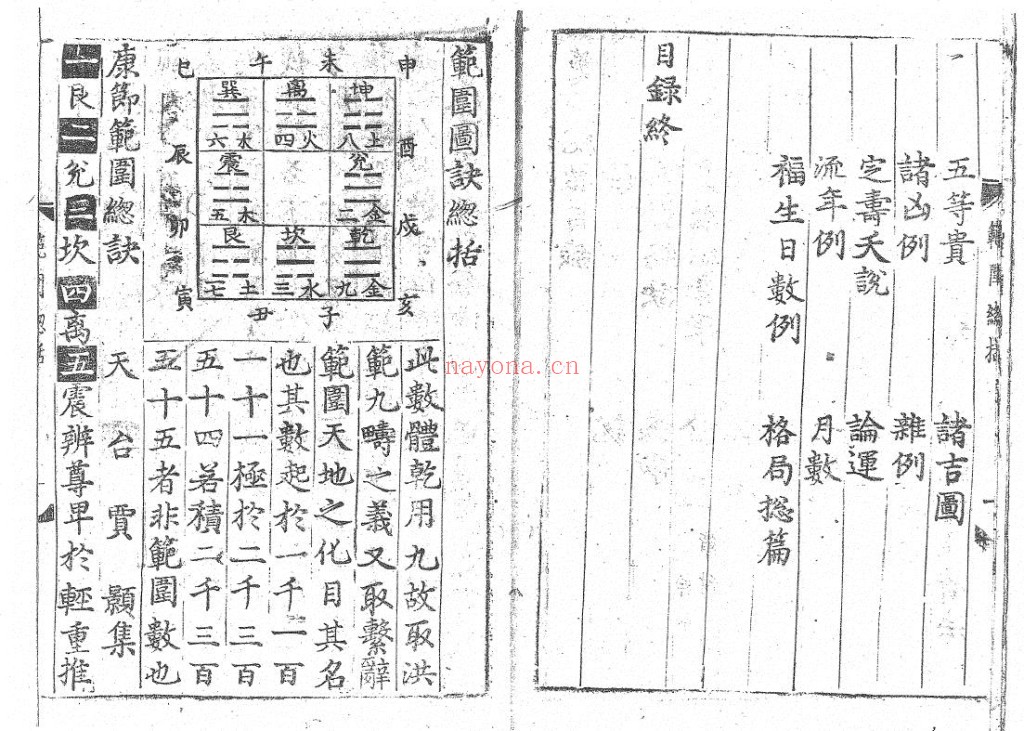 五等貴　諸吉圖
諸凶例　雜例
定壽夭說　論運
流年例　月數
福生日數例　格局捴篇
目録終
範圍圖訣緫括
申　未　午　巳
酉　戌　亥
子　丑
辰　卯　寅
坤　八土
离　四火
巽　六木
兊　二金
震　五木
乾　九金
坎　三水
艮　七土
此數體乾用九故取洪
範九疇之義又取繫辭
範圍天地之化目其名
也其數起於一千一百
一十一極於二千三百
五十四若積二千三百
五十五者非範圍數也
康節範圍緫訣　天台賈顥集
一艮二兊三坎四离五震辨尊卑於輕重推
nayona.cn